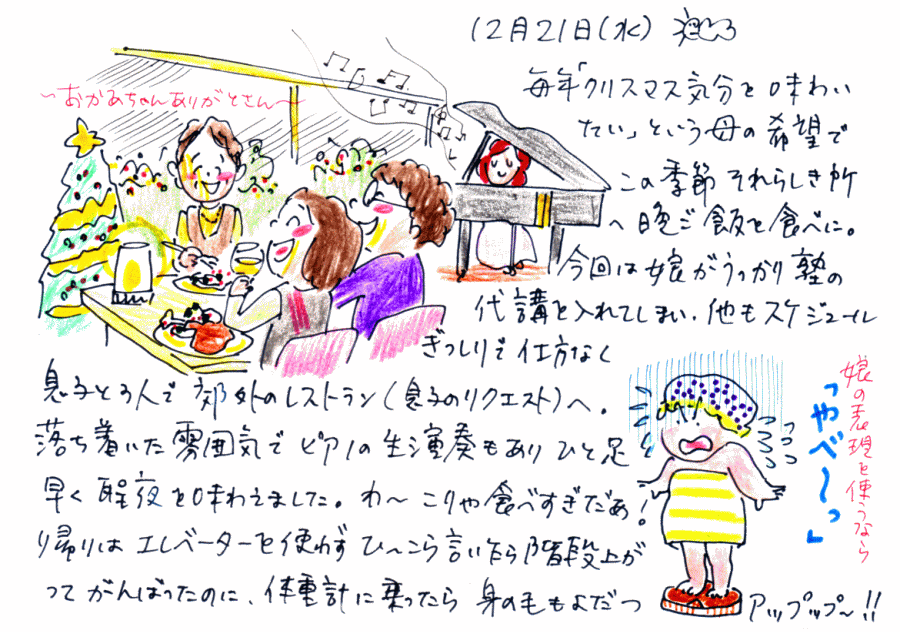 12月21日(水)
〜おかあちゃんありがとさん〜
毎年「クリスマス気分を味わい
たい」という母の希望で
この季節それらしき所
へ晩ご飯を食べに。
今回は娘がうっかり塾の
代講を入れてしまい、他もスケジュール
ぎっしりで仕方なく
息子と3人で郊外のレストラン(息子のリクエスト)へ。
落ち着いた雰囲気でピアノの生演奏もありひと足
早く聖夜を味わえました。わ〜こりゃ食べすぎだぁ!
帰りはエレベーターを使わずひ〜こら言い乍ら階段上が
ってがんばったのに、体重計に乗ったら身の毛もよだつ
アップップ〜!!
娘の表現を使うなら
「やべ〜っ」